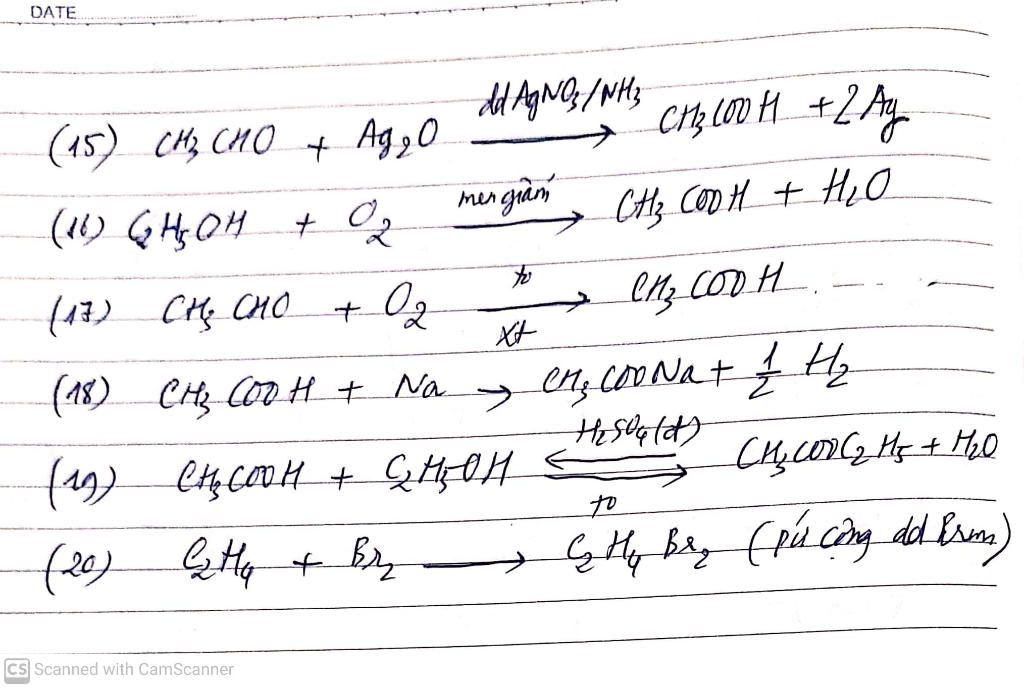 DATE
(15) CH3CHO + Ag2O dd AgNO3/NH3 → CH3COOH + 2Ag
(16) C2H5OH + O2 men giấm → CH3COOH + H2O
(17) CH3CHO + O2 to → xt CH3COOH
(18) CH3COOH + Na → CH3COONa + 1/2 H2
(19) CH3COOH + C2H5OH H2SO4(đ) ⇌ to CH3COOC2H5 + H2O
(20) C2H4 + Br2 → C2H4Br2 (pứ cộng dd Brom)
CS Scanned with CamScanner